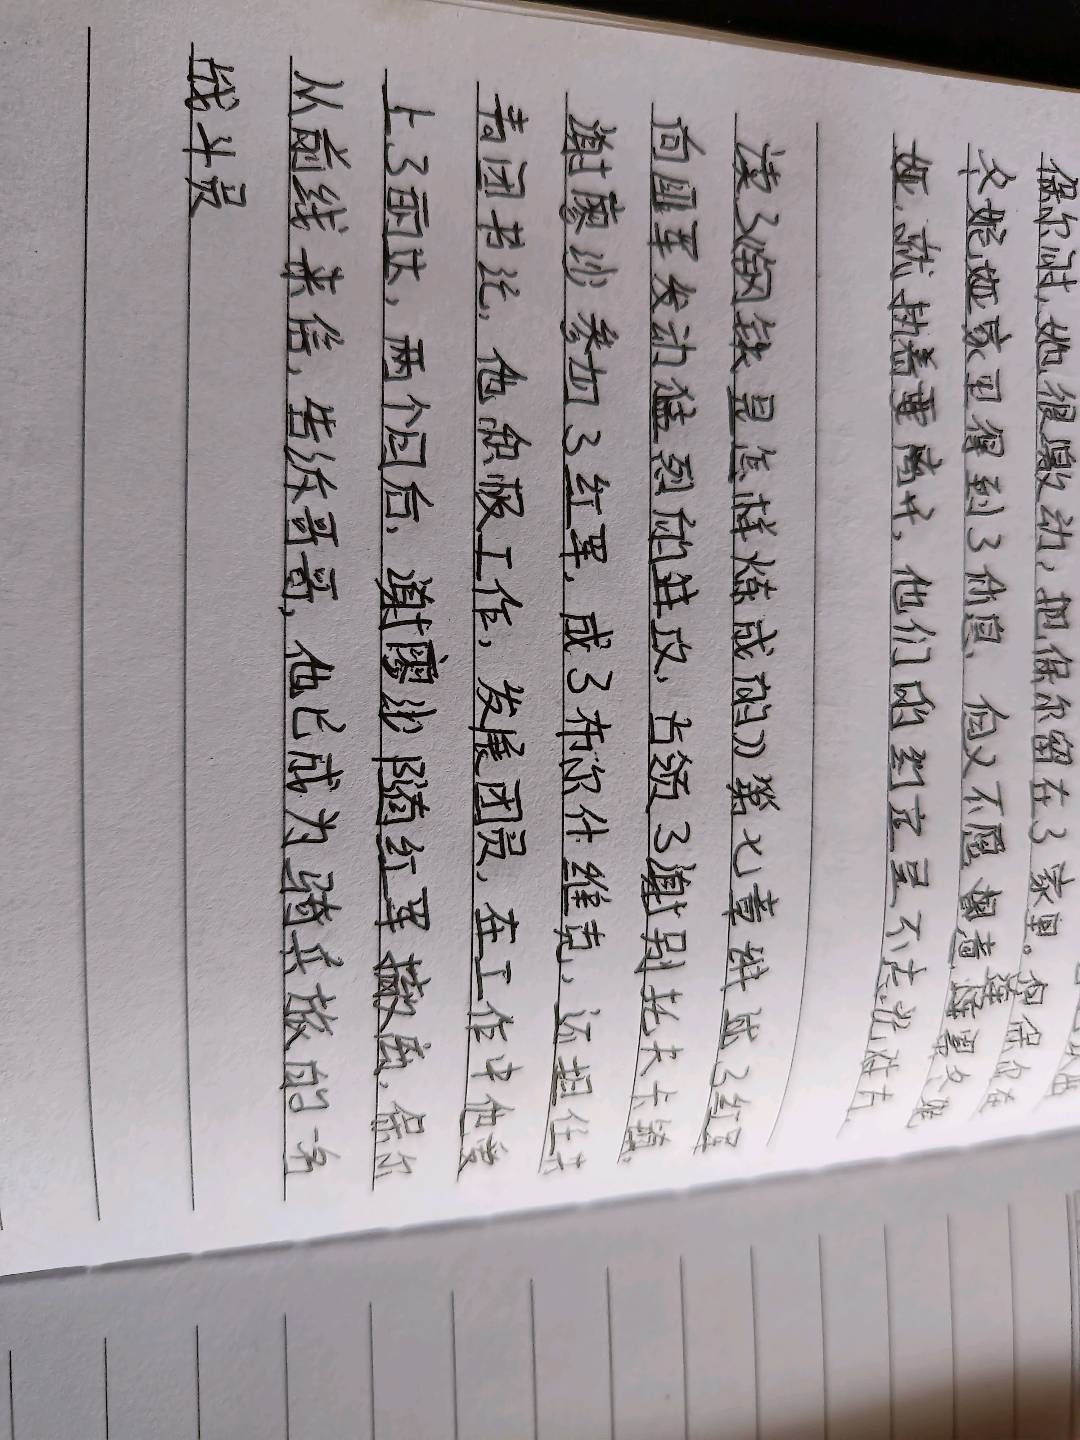 保尔时,她很激动,把保尔留在了家里。保尔在
冬妮娅家里得到了休息,但又不愿
娅,就执着要离开,他们的约立呈不忘
读了《钢铁是怎样炼成的》第七章讲述了红军
向且军发动猛烈的进攻,占领了谢别托夫卡镇.
谢廖沙参加了红军,成了布尔什维克,还担任共
青团书记,他积极工作,发展团员,在工作中他爱
上了丽达,两个月后,谢廖沙随红军撤离.保尔
从前线来信,告诉哥哥,他已成为骑兵旅的一名
战斗员